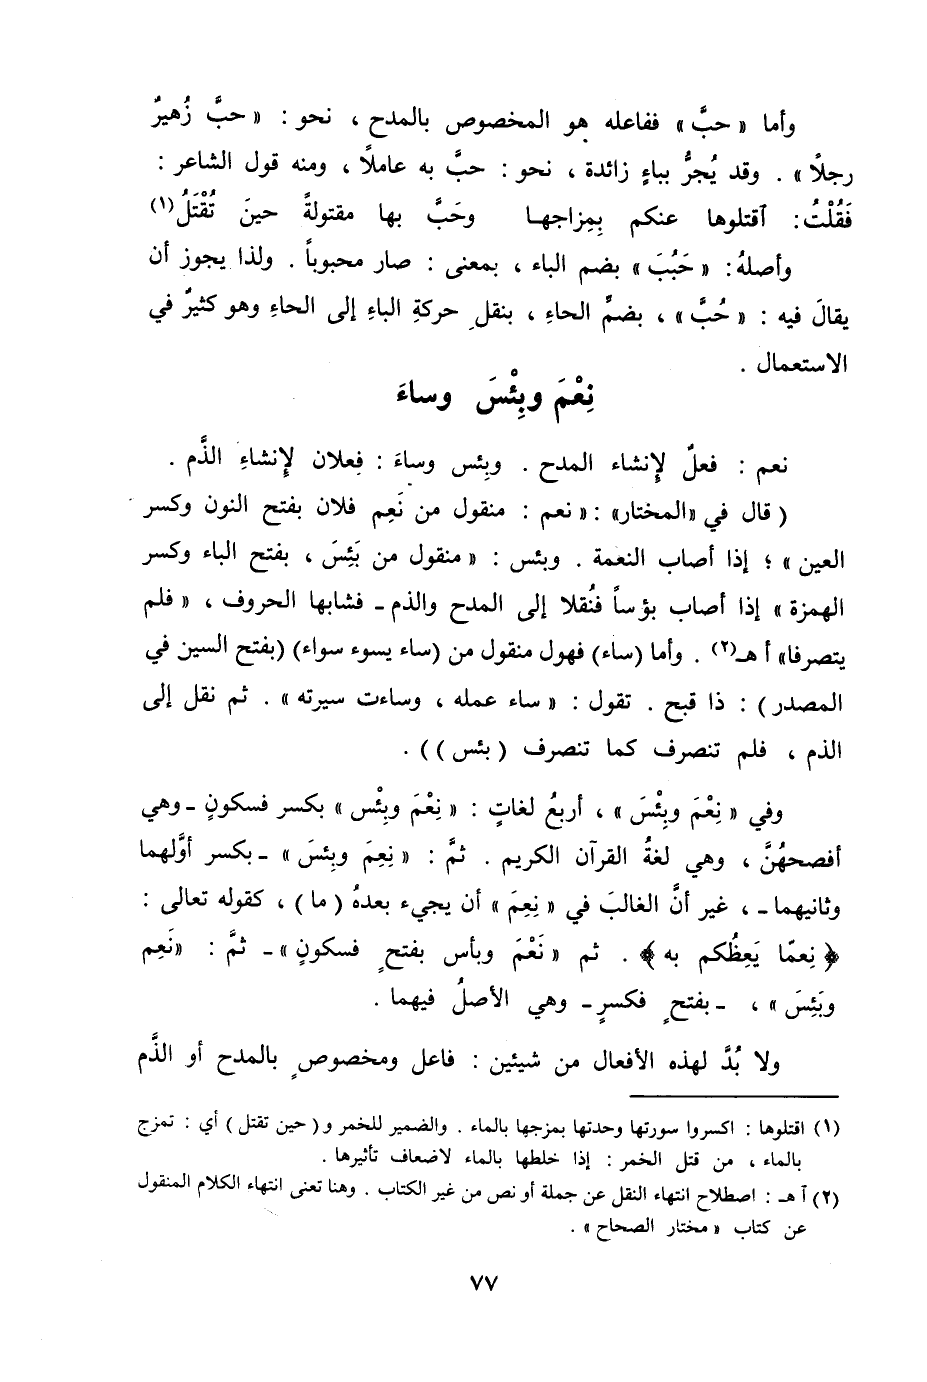 وأما « حبَّ » ففاعله هو المخصوص بالمدح ، نحو : « حبَّ زُهيرٌ
رجلًا » . وقد يُجرُّ بباءٍ زائدة ، نحو : حبَّ به عاملًا ، ومنه قول الشاعر :
فَقُلْتُ: آقتلوها عنكم بِمِزاجهـا وحَبَّ بها مقتولةً حينَ تُقْتَلُ(١)
وأصلهُ: « حَبُبَ » بضم الباء ، بمعنى : صار محبوباً . ولذا يجوز أن
يقالَ فيه : « حُبَّ » ، بضمِّ الحاءِ ، بنقلِ حركةِ الباءِ إلى الحاءِ وهو كثيرٌ في
الاستعمال .
نِعْمَ وبِئْسَ وساءَ
نعم : فعلٌ لإنشاء المدح . وبِئس وساءَ : فعلان لإنشاءِ الذَّم .
( قال في «المختار» : « نعم : منقول من نَعِم فلان بفتح النون وكسر
العين » ؛ إذا أصاب النعمة . وبئس : « منقول من بَئِسَ ، بفتح الباء وكسر
الهمزة » إذا أصاب بؤساً فنُقلا إلى المدح والذم ـ فشابها الحروف ، « فلم
يتصرفا» أ هـ(٢) . وأما (ساء) فهول منقول من (ساء يسوء سواء) (بفتح السين في
المصدر) : ذا قبح . تقول : « ساء عمله ، وساءت سيرته » . ثم نقل إلى
الذم ، فلم تنصرف كما تنصرف ( بئس ) ) .
وفي « نِعْمَ وبِئْسَ » ، أربعُ لغاتٍ : « نِعْمَ وبِئْس » بكسر فسكونٍ ـ وهي
أفصحهُنَّ ، وهي لغةُ القرآن الكريم . ثمَّ : « نِعِمَ وبِئسَ » ـ بكسر أوَّلهما
وثانيهما ـ ، غير أنَّ الغالبَ في « نِعِمَ » أن يجيء بعدهُ ( ما ) ، كقوله تعالى :
﴿ نِعمّا يَعِظُكم به ﴾ . ثم « نَعْمَ وبأس بفتحٍ فسكونٍ » ـ ثمَّ : «نَعِم
وبَئِسَ » ، ـ بفتحٍ فكسرٍ ـ وهي الأصلُ فيهما .
ولا بُدَّ لهذه الأفعال من شيئين : فاعل ومخصوصٍ بالمدح أو الذَّم
(١) اقتلوها : اكسروا سورتها وحدتها بمزجها بالماء . والضمير للخمر و( حين تقتل ) أي : تمزج
بالماء ، من قتل الخمر : إذا خلطها بالماء لاضعاف تأثيرها .
(٢) آ هـ : اصطلاح انتهاء النقل عن جملة أو نص من غير الكتاب . وهنا تعنى انتهاء الكلام المنقول
عن كتاب « مختار الصحاح » .
٧٧